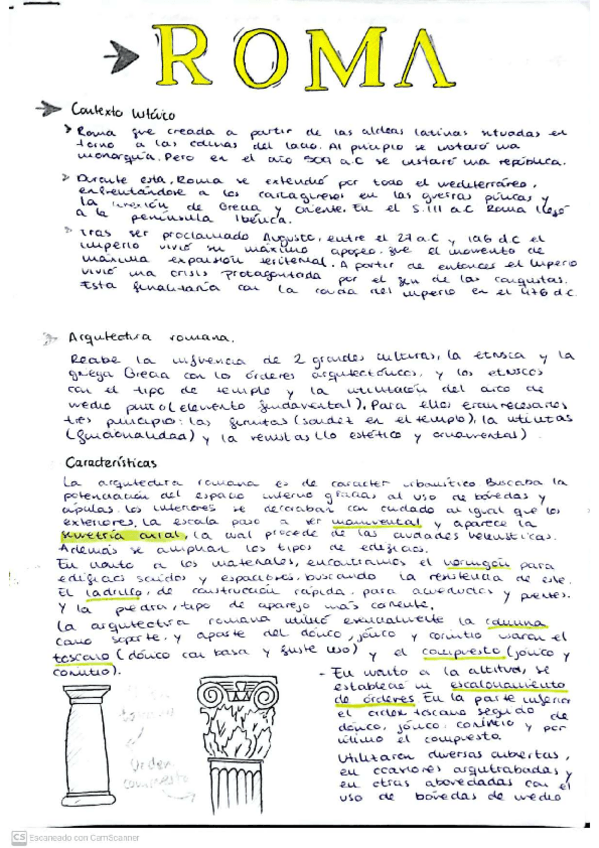 ROMA
Contexto histórico
Roma fue creada a partir de las aldeas latinas situadas en
torno a las colinas del lacio. Al principio se instauró una
monarquía. Pero en el año 509 a.C se instauró una república.
Durante esta, Roma se extendió por todo el mediterráneo,
enfrentándose a los cartagineses en las guerras púnicas y
la de Grecia y Oriente. En el S.III a.C Roma llegó
a la península Ibérica.
Tras ser proclamado Augusto, entre el 27 a.C y 196 d.C el
imperio vivió su máximo apogeo, fue el momento de
máxima expansión territorial. A partir de entonces el Imperio
vivió una crisis protagonizada por el fin de las conquistas.
Esta finalizaría con la caída del imperio en el 476 d.C
Arquitectura romana.
Recibe la influencia de 2 grandes culturas, la etrusca y la
griega Grecia con los órdenes arquitectónicos, y los etruscos
con el tipo de templo y la utilización del arco de
medio punto (elemento fundamental). Para ellos eran necesarios
tres principio: las firmitas (solidez en el templo), la utilitas
(funcionalidad) y la venustas (lo estético y ornamental)
Características
La arquitectura romana es de caracter urbanístico Buscaba la
potenciación del espacio interno gracias al uso de bóvedas y
cúpulas. los interiores se decoraban con cuidado al igual que los
exteriores, la escala pasa a ser monumental y aparece la
simetría axial, la cual procede de las ciudades helenísticas.
Además se amplían los tipos de edificios.
En cuanto a los materiales, encontramos el hormigón para
edificios sólidos y espaciosos, buscando la resistencia de este.
El ladrillo, de construcción rápida, para acueductos y puentes.
Y la piedra, tipo de aparejo más corriente.
La arquitectura romana utilizó exclusivamente la columna
como soporte, y aparte del dórico, jónico y corintio usaron el
toscano (dórico con basa y fuste liso) y el compuesto (jónico y
corintio).
- En cuanto a la altitud, se
establece un escalonamiento
de órdenes En la parte inferior
el orden toscano seguido de
dórico, jónico, corintio y por
último el compuesto.
Utilizaron diversas cubiertas,
en ocasiones arquitrabadas y
en otras abovedadas con el
uso de bóvedas de medio
Orden
compuesto
CS Escaneado con CamScanner